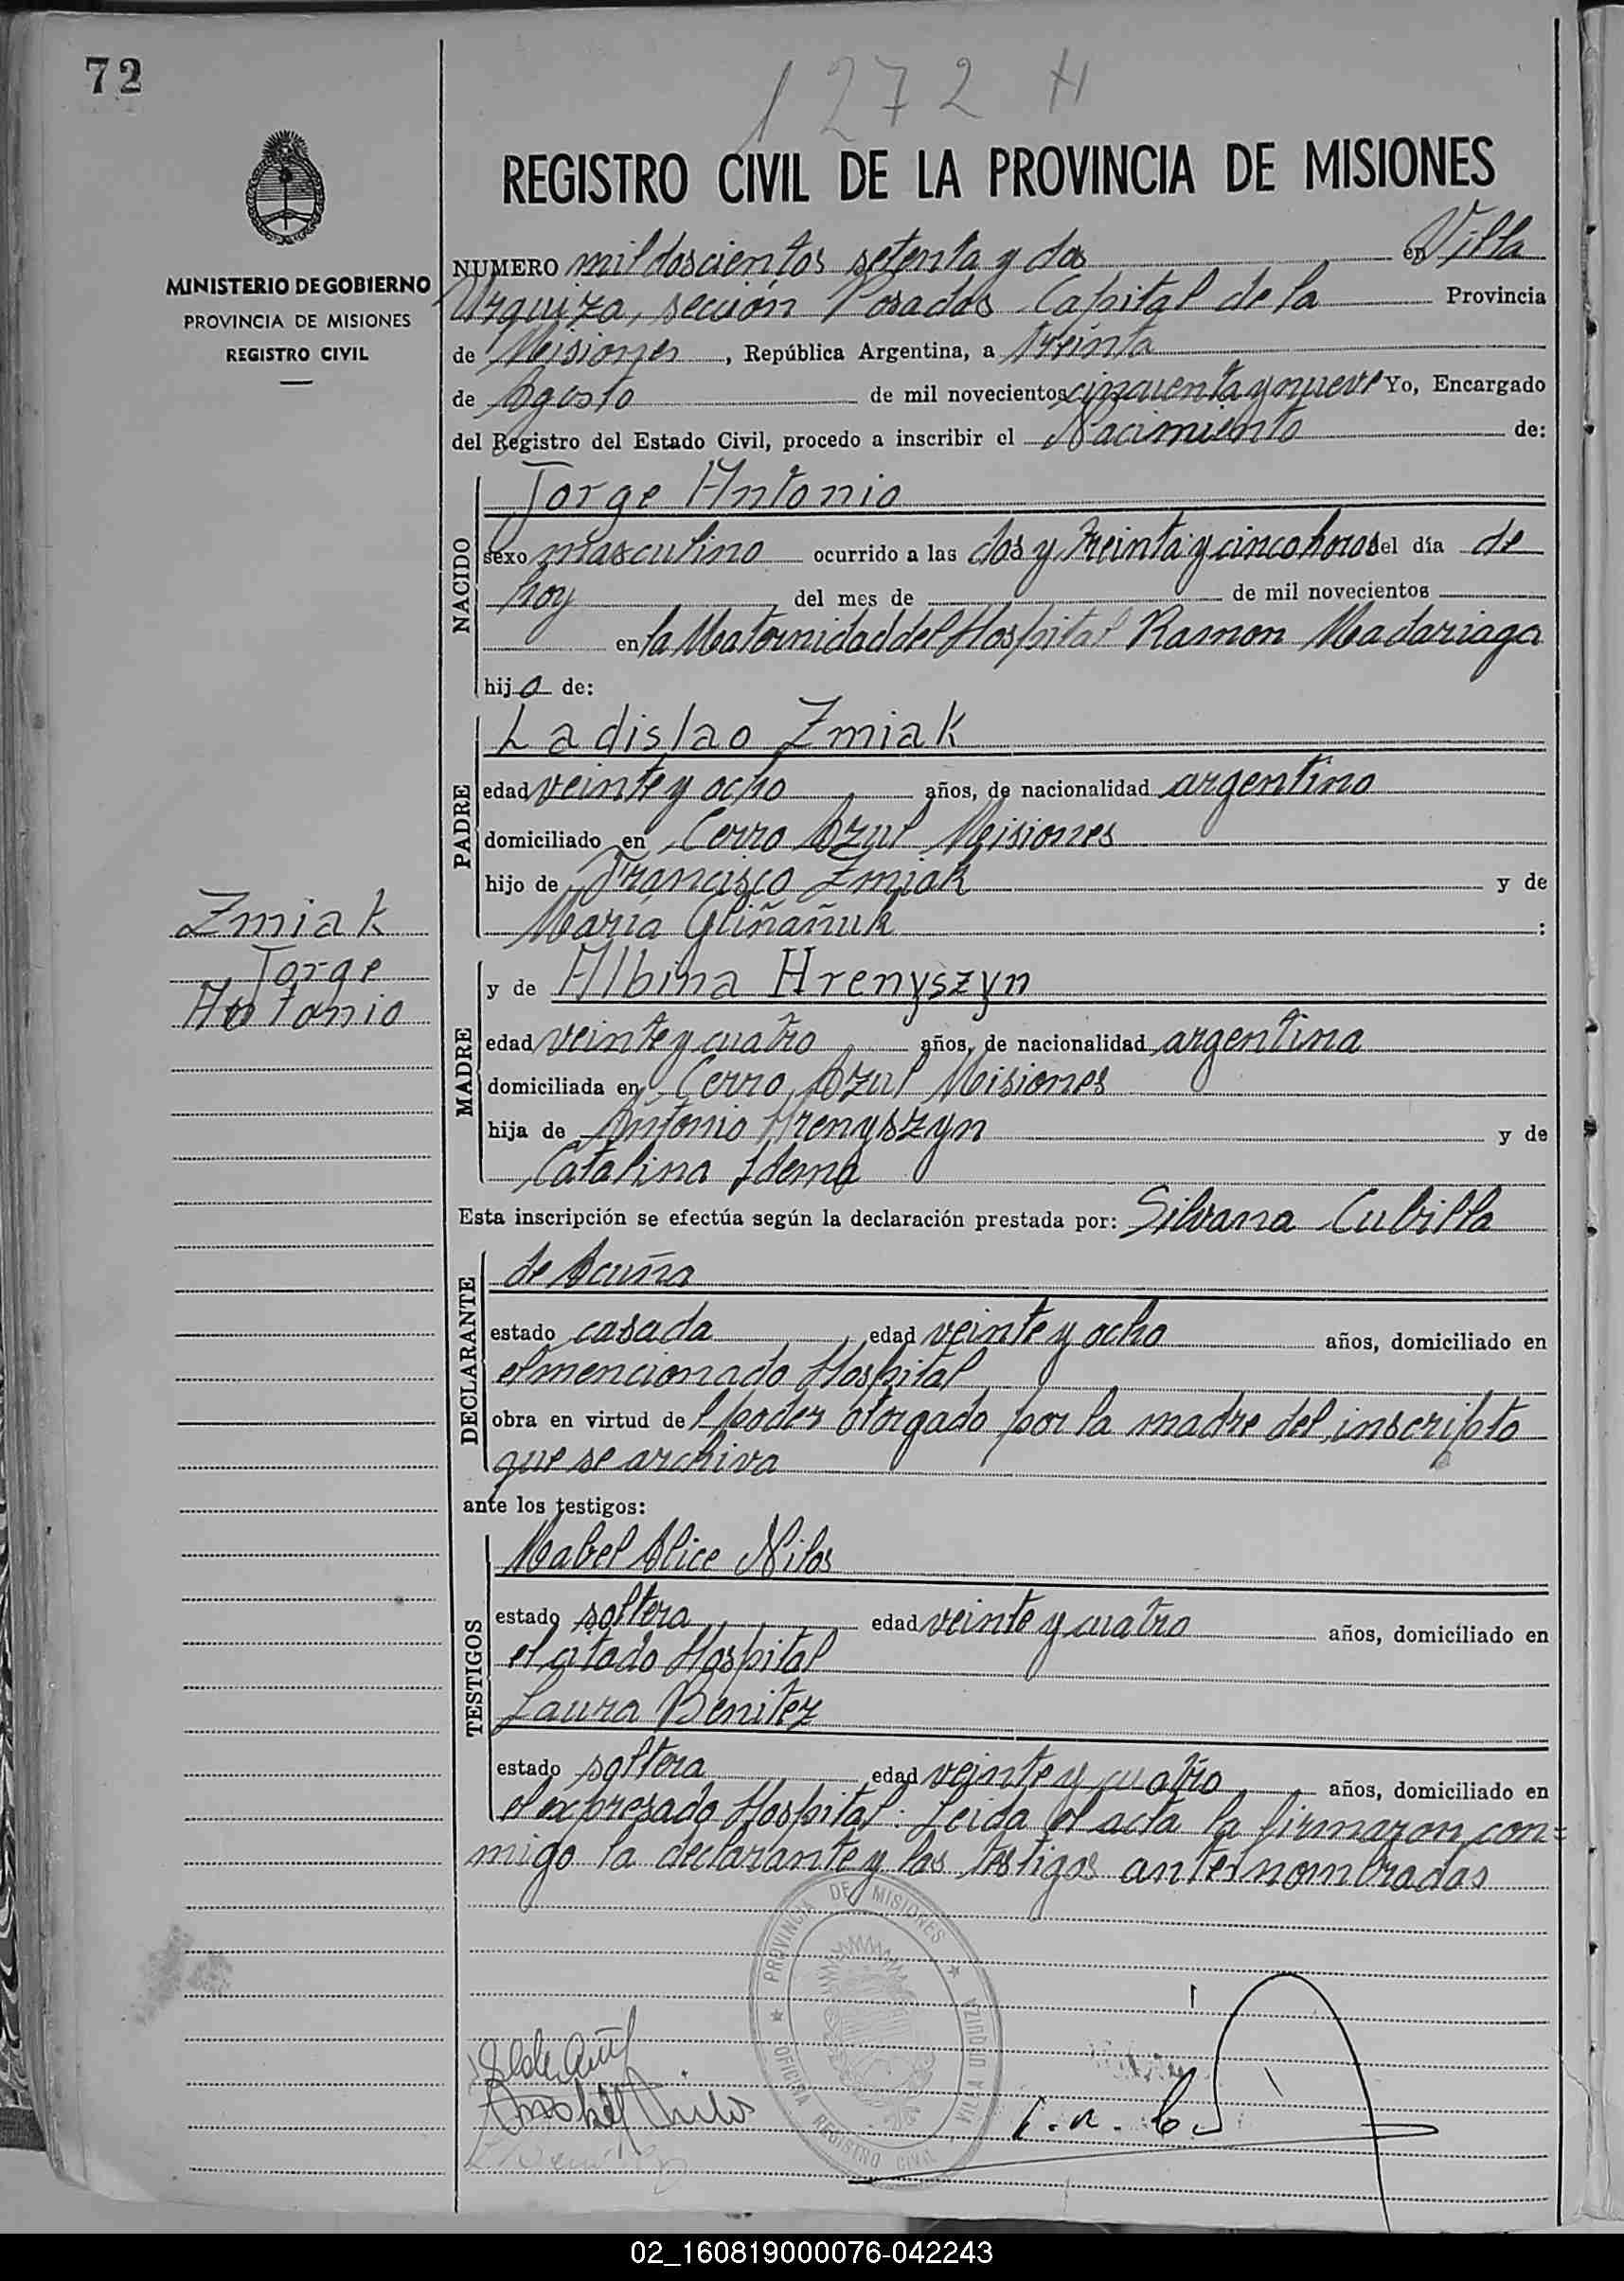 72
1272 H
MINISTERIO DE GOBIERNO
PROVINCIA DE MISIONES
REGISTRO CIVIL
REGISTRO CIVIL DE LA PROVINCIA DE MISIONES
NUMERO mil doscientos setenta y dos en Villa
Urquiza, sección Posadas Capital de la Provincia
de Misiones, República Argentina, a treinta
de Agosto de mil novecientos cincuenta y nueve Yo, Encargado
del Registro del Estado Civil, procedo a inscribir el Nacimiento de:
NACIDO
Jorge Antonio
sexo masculino ocurrido a las dos y treinta y cinco horas del día de
hoy del mes de de mil novecientos
en la Maternidad del Hospital Ramon Madariaga
hijo de:
PADRE
Ladislao Zmiak
edad veinte y ocho años, de nacionalidad argentino
domiciliado en Cerro Azul Misiones
hijo de Francisco Zmiak y de
María Gliñañuk :
Zmiak
Jorge
Antonio
MADRE
y de Albina Hrenyszyn
edad veinte y cuatro años, de nacionalidad argentina
domiciliada en Cerro Azul Misiones
hija de Antonio Hrenyszyn y de
Catalina
Esta inscripción se efectúa según la declaración prestada por: Silvana Cubilla
DECLARANTE
de Acuña
estado casada edad veinte y ocho años, domiciliado en
el mencionado Hospital
obra en virtud del poder otorgado por la madre del inscripto
que se archiva
ante los testigos:
TESTIGOS
Mabel Alice Nilos
estado soltera edad veinte y cuatro años, domiciliado en
el citado Hospital
Laura Benitez
estado soltera edad veinte y cuatro años, domiciliado en
el expresado Hospital: Leida el acta la firmaron con=
migo la declarante y las testigos anternombradas
PROVINCIA DE MISIONES
OFICINA REGISTRO CIVIL VILLA URQUIZA
02_160819000076-042243